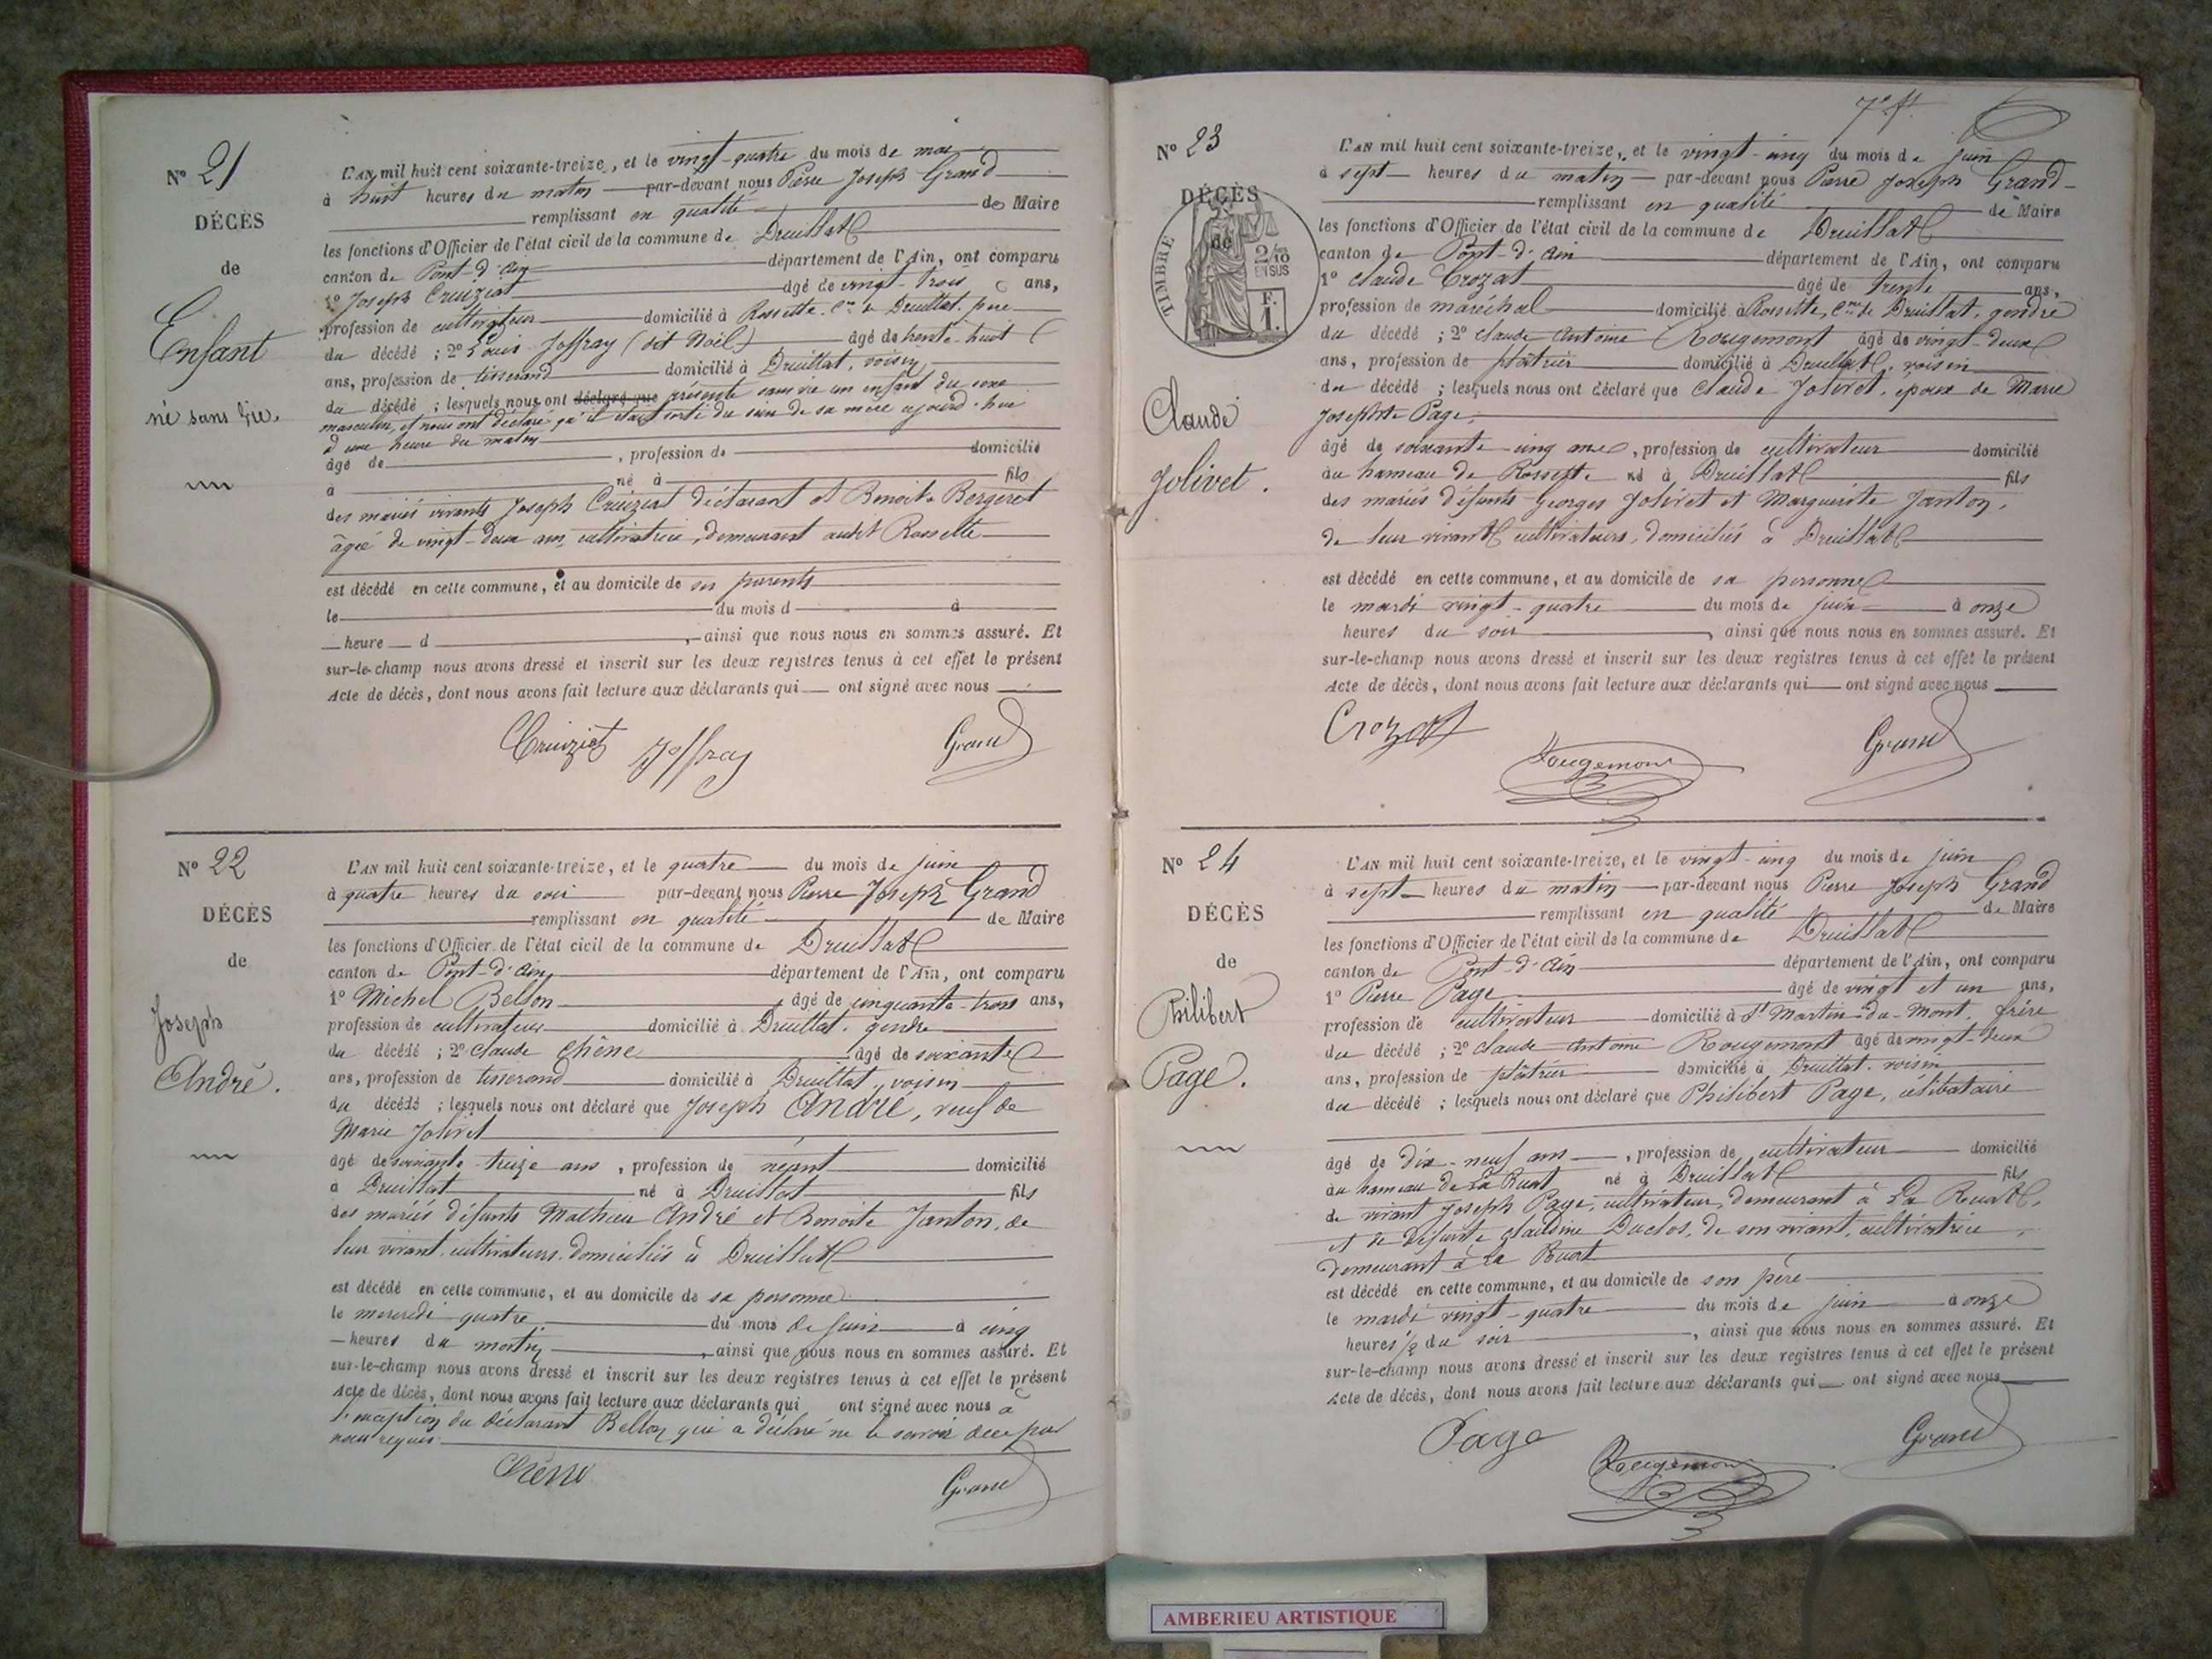 N° 21
DÉCÈS
de
Enfant
né sans vie.
L'AN mil huit cent soixante-treize, et le vingt-quatre du mois de mai
à huit heures du matin par-devant nous Pierre Joseph Grand
remplissant en qualité de Maire
les fonctions d'Officier de l'état civil de la commune de Druillat
canton de Pont-d'Ain département de l'Ain, ont comparu
1° Joseph Cruiziat âgé de vingt-trois ans,
profession de cultivateur domicilié à Rossette, Cne de Druillat, père
du décédé ; 2° Louis Joffray (dit Noël) âgé de trente-huit
ans, profession de tisserand domicilié à Druillat, voisin
du décédé ; lesquels nous ont déclaré que présenté sans vie un enfant du sexe
masculin, et nous ont déclaré qu'il était sorti du sein de sa mère aujourd'hui
à une heure du matin
âgé de , profession de domicilié
à né à fils
des mariés vivants Joseph Cruiziat déclarant et Benoite Bergeret
âgée de vingt-deux ans, cultivatrice, demeurant audit Rossette
est décédé en cette commune, et au domicile de ses parents
le du mois d à
heure d , ainsi que nous nous en sommes assuré. Et
sur-le-champ nous avons dressé et inscrit sur les deux registres tenus à cet effet le présent
Acte de décès, dont nous avons fait lecture aux déclarants qui ont signé avec nous
Cruiziat Joffray Grand
N° 22
DÉCÈS
de
Joseph
André.
L'AN mil huit cent soixante-treize, et le quatre du mois de juin
à quatre heures du soir par-devant nous Pierre Joseph Grand
remplissant en qualité de Maire
les fonctions d'Officier de l'état civil de la commune de Druillat
canton de Pont-d'Ain département de l'Ain, ont comparu
1° Michel Bellon âgé de cinquante-trois ans,
profession de cultivateur domicilié à Druillat, gendre
du décédé ; 2° Claude Chêne âgé de soixante
ans, profession de tisserand domicilié à Druillat, voisin
du décédé ; lesquels nous ont déclaré que Joseph André, veuf de
Marie Jolivet
âgé de soixante-treize ans, profession de néant domicilié
à Druillat né à Druillat fils
des mariés défunts Mathieu André et Benoite Janton, de
leur vivant cultivateurs, domiciliés à Druillat
est décédé en cette commune, et au domicile de sa personne
le mercredi quatre du mois de juin à cinq
heures du matin , ainsi que nous nous en sommes assuré. Et
sur-le-champ nous avons dressé et inscrit sur les deux registres tenus à cet effet le présent
Acte de décès, dont nous avons fait lecture aux déclarants qui ont signé avec nous à
l'exception du déclarant Bellon qui a déclaré ne le savoir de ce par
nous requis.
Chêne Grand
7e f.
N° 23
DÉCÈS
de
TIMBRE
2/10
EN SUS
F.
1.
Claude
Jolivet.
L'AN mil huit cent soixante-treize, et le vingt-cinq du mois de juin
à sept heures du matin par-devant nous Pierre Joseph Grand
remplissant en qualité de Maire
les fonctions d'Officier de l'état civil de la commune de Druillat
canton de Pont-d'Ain département de l'Ain, ont comparu
1° Claude Crozat âgé de trente ans,
profession de maréchal domicilié à Rossette, Cne de Druillat, gendre
du décédé ; 2° Claude Antoine Rougemont âgé de vingt-deux
ans, profession de plâtrier domicilié à Druillat, voisin
du décédé ; lesquels nous ont déclaré que Claude Jolivet, époux de Marie
Josephte Page,
âgé de soixante-cinq ans, profession de cultivateur domicilié
au hameau de Rossette né à Druillat fils
des mariés défunts Georges Jolivet et Marguerite Janton,
de leur vivant cultivateurs, domiciliés à Druillat
est décédé en cette commune, et au domicile de sa personne
le mardi vingt-quatre du mois de juin à onze
heures du soir , ainsi que nous nous en sommes assuré. Et
sur-le-champ nous avons dressé et inscrit sur les deux registres tenus à cet effet le présent
Acte de décès, dont nous avons fait lecture aux déclarants qui ont signé avec nous
Crozat Rougemont Grand
N° 24
DÉCÈS
de
Philibert
Page.
L'AN mil huit cent soixante-treize, et le vingt-cinq du mois de juin
à sept heures du matin par-devant nous Pierre Joseph Grand
remplissant en qualité de Maire
les fonctions d'Officier de l'état civil de la commune de Druillat
canton de Pont-d'Ain département de l'Ain, ont comparu
1° Pierre Page âgé de vingt et un ans,
profession de cultivateur domicilié à St Martin-du-Mont, frère
du décédé ; 2° Claude Antoine Rougemont âgé de vingt-deux
ans, profession de plâtrier domicilié à Druillat, voisin
du décédé ; lesquels nous ont déclaré que Philibert Page, célibataire
âgé de dix-neuf ans, profession de cultivateur domicilié
au hameau de La Ruat né à Druillat fils
de vivant Joseph Page, cultivateur, demeurant à La Ruat,
et de défunte Claudine Duclos, de son vivant, cultivatrice
demeurant à La Ruat
est décédé en cette commune, et au domicile de son père
le mardi vingt-quatre du mois de juin à onze
heures 1/2 du soir , ainsi que nous nous en sommes assuré. Et
sur-le-champ nous avons dressé et inscrit sur les deux registres tenus à cet effet le présent
Acte de décès, dont nous avons fait lecture aux déclarants qui ont signé avec nous
Page Rougemont Grand
AMBERIEU ARTISTIQUE